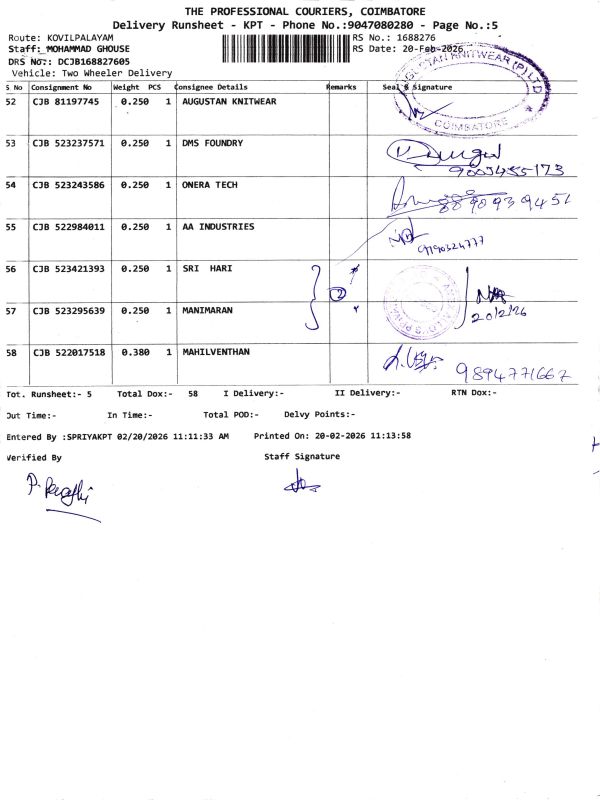 THE PROFESSIONAL COURIERS, COIMBATORE
Delivery Runsheet - KPT - Phone No.:9047080280 - Page No.:5
Route: KOVILPALAYAM RS No.: 1688276
Staff: MOHAMMAD GHOUSE RS Date: 20-Feb-2026
DRS No:: DCJB168827605
Vehicle: Two Wheeler Delivery
S No Consignment No Weight PCS Consignee Details Remarks Seal & Signature
52 CJB 81197745 0.250 1 AUGUSTAN KNITWEAR
AUGUSTAN KNITWEAR (P) LTD
COIMBATORE
53 CJB 523237571 0.250 1 DMS FOUNDRY
9003455173
54 CJB 523243586 0.250 1 ONERA TECH
8890939451
55 CJB 522984011 0.250 1 AA INDUSTRIES
9190324777
56 CJB 523421393 0.250 1 SRI HARI
2
57 CJB 523295639 0.250 1 MANIMARAN
20/2/26
58 CJB 522017518 0.380 1 MAHILVENTHAN
9894771667
Tot. Runsheet:- 5 Total Dox:- 58 I Delivery:- II Delivery:- RTN Dox:-
Out Time:- In Time:- Total POD:- Delvy Points:-
Entered By :SPRIYAKPT 02/20/2026 11:11:33 AM Printed On: 20-02-2026 11:13:58
Verified By Staff Signature